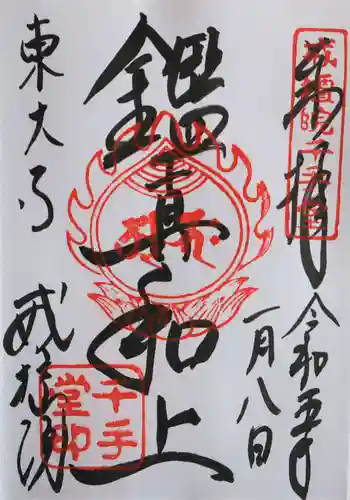 奉拝
令和五年
一月八日
鑑真和上
東大寺
戒壇院
戒壇院千手堂
千手
堂印